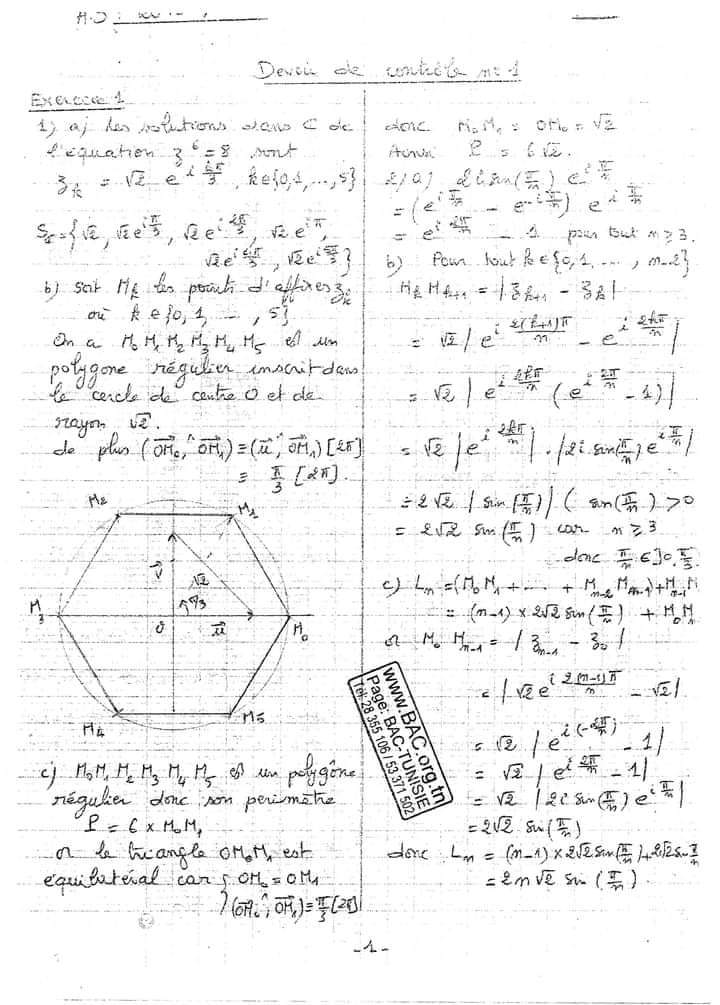 Devoir de contrôle n° 1
Exercice 1
1) a) Les solutions dans C de
l'équation z^6 = 8 sont
z_k = √2 e^{i kπ/3}, k∈{0,1,...,5}
= {√2, √2e^{iπ/3}, √2 e^{i2π/3}, √2 e^{iπ},
√2e^{i4π/3}, √2e^{i5π/3}}
b) soit M_k les points d'affixes z_k
où k ∈ {0, 1, - - , 5}
On a M₀M₁M₂M₃M₄M₅ est un
polygone régulier inscrit dans
le cercle de centre O et de
rayon √2.
de plus (OM₀^, OM₁) ≡ (u^, OM₁) [2π]
≡ π/3 [2π].
M₂
M₁
v
√2
π/3
M₃
O
u
M₀
M₄
M₅
c) M₀M₁M₂M₃M₄M₅ est un polygône
régulier donc son périmètre
P = 6 × M₀M₁
or le triangle OM₀M₁ est
équilatéral car { OM₀ = OM₁
(OM₀^, OM₁) ≡ π/3 [2π]
donc M₀M₁ = OM₀ = √2
Ainsi P = 6√2.
2/ a) 2i sin(π/n) e^{iπ/n}
= (e^{iπ/n} - e^{-iπ/n}) e^{iπ/n}
= e^{i2π/n} - 1 pour tout n ≥ 3.
b) Pour tout k∈{0,1,..., n-2}
M_k M_{k+1} = |z_{k+1} - z_k|
= √2 | e^{i 2(k+1)π/n} - e^{i 2kπ/n} |
= √2 | e^{i 2kπ/n} (e^{i 2π/n} - 1) |
= √2 | e^{i 2kπ/n} | . | 2i sin(π/n) e^{iπ/n} |
= 2√2 | sin(π/n) | ( sin(π/n) > 0
= 2√2 sin(π/n) car n ≥ 3
donc π/n ∈ ]0, π/3
c) L_n = (M₀M₁ + ... + M_{n-2}M_{n-1}) + M_{n-1}M
= (n-1) × 2√2 sin(π/n) + M₀M
or M₀M_{n-1} = | z_{n-1} - z₀ |
= | √2 e^{i 2(n-1)π/n} - √2 |
= √2 | e^{i(-2π/n)} - 1 |
= √2 | e^{i 2π/n} - 1 |
= √2 | 2i sin(π/n) e^{iπ/n} |
= 2√2 sin(π/n)
donc L_n = (n-1) × 2√2 sin(π/n) + 2√2 sin π/n
= 2n√2 sin (π/n).
www.BAC.org.tn
Page: BAC-TUNISIE
Tel: 28 355 106 / 53 371 502
- 1 -